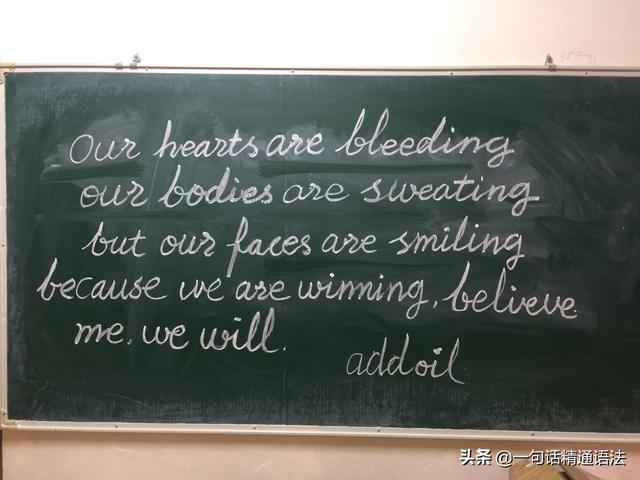 Our hearts are bleeding
our bodies are sweating
but our faces are smiling
because we are winning, believe
me. we will.
add oil
头条 @一句话精通语法